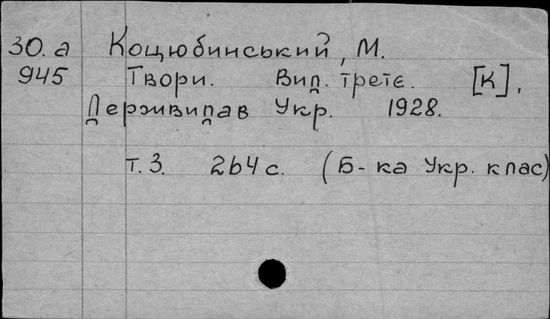 30.а Коцюбинський, М.
945 Твори. Вид. третє. [К],
Держвидав Укр. 1928.
т.3. 264 с. (Б-ка Укр. клас)